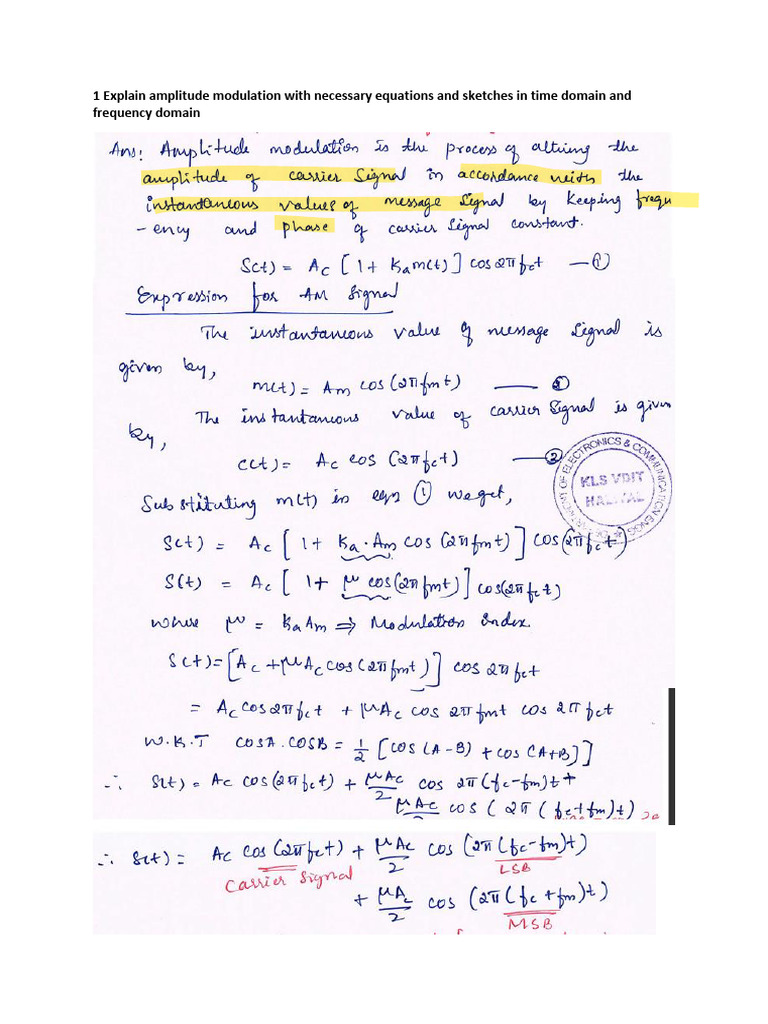 1 Explain amplitude modulation with necessary equations and sketches in time domain and
frequency domain
Ans: Amplitude modulation is the process of altering the
amplitude of carrier Signal in accordance with the
instantaneous values of message Signal by keeping frequ
-ency and phase of carrier Signal constant.
S(t) = Ac [1 + Kam(t)] cos2πfct —①
Expression for AM Signal
The instantaneous value of message Signal is
given by,
m(t) = Am cos(2πfmt) —
The instantaneous value of carrier Signal is given
by,
c(t) = Ac cos (2πfct) —②
DEPARTMENT OF ELECTRONICS & COMMUNICATION ENGG
KLS VDIT
HALIYAL
Substituting m(t) in eqn ① we get,
S(t) = Ac [1 + Ka·Am cos(2πfmt)] cos(2πfct)
S(t) = Ac [1 + μ cos(2πfmt)] cos(2πfct)
where μ = KaAm ⇒ Modulation Index.
S(t) = [Ac + μAc cos(2πfmt)] cos 2πfct
= Ac cos2πfct + μAc cos 2πfmt cos 2πfct
W.K.T cosA.cosB = 1/2 [cos(A-B) + cos(A+B)]
∴ S(t) = Ac cos(2πfct) + μAc/2 cos 2π(fc-fm)t +
μAc/2 cos(2π(fc+fm)t)
∴ S(t) = Ac cos(2πfct) + μAc/2 cos (2π(fc-fm)t)
Carrier Signal LSB
+ μAc/2 cos (2π(fc+fm)t)
MSB